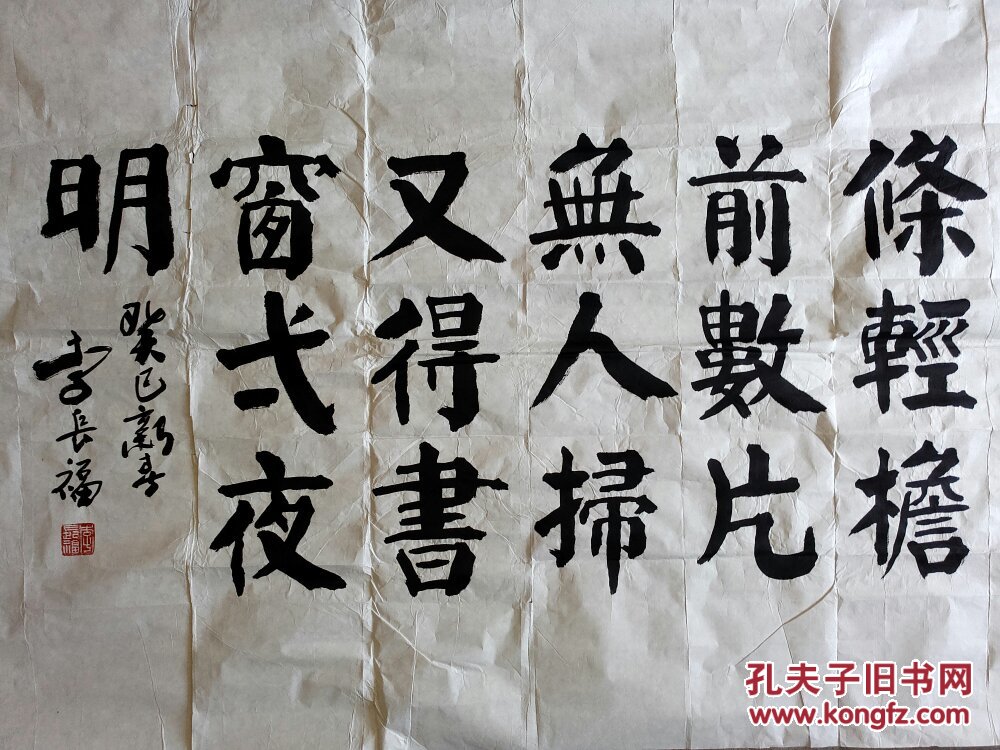 條輕檐
前數片
無人掃
又得書
窗弌夜
明
癸巳新春
李長福
孔夫子旧书网
www.kongfz.com